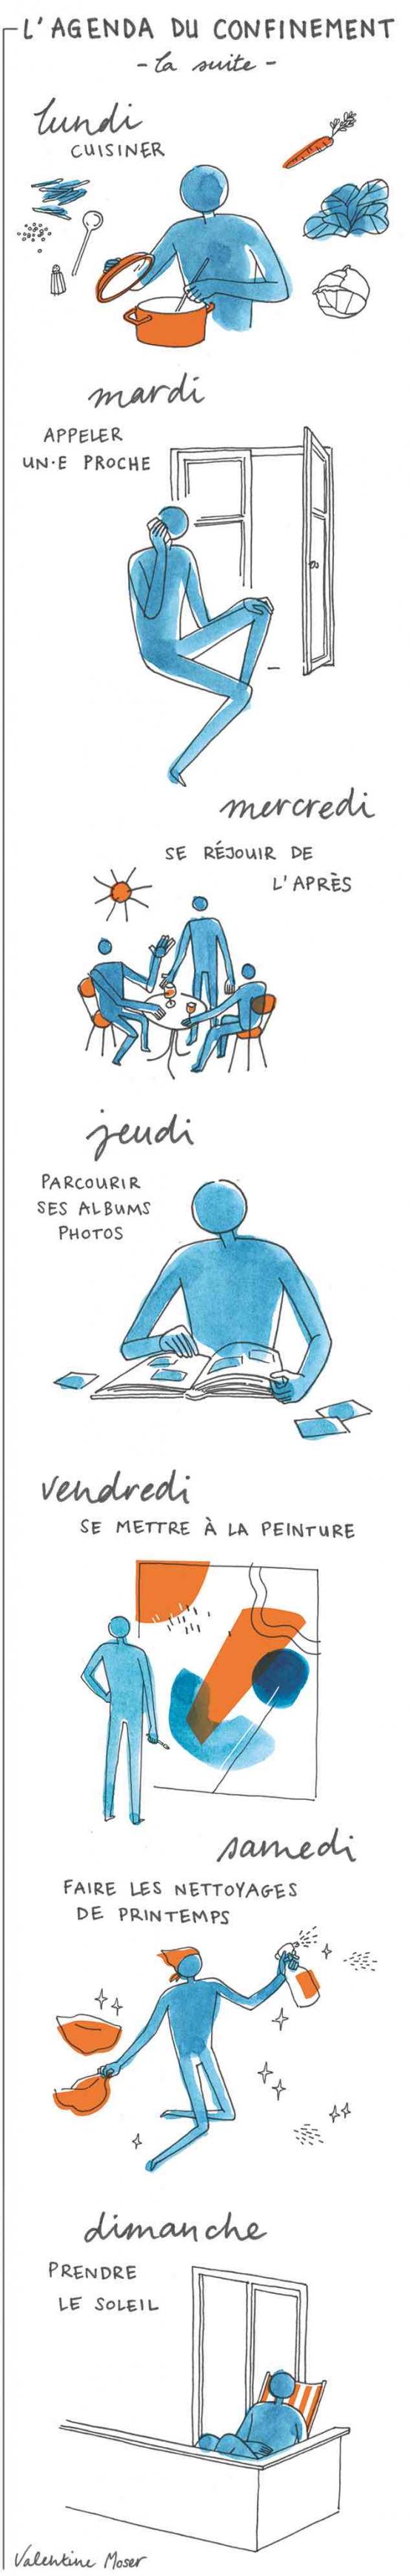 L'AGENDA DU CONFINEMENT
- la suite -
lundi
CUISINER
mardi
APPELER
UN·E PROCHE
mercredi
SE RÉJOUIR DE
L'APRÈS
jeudi
PARCOURIR
SES ALBUMS
PHOTOS
vendredi
SE METTRE À LA PEINTURE
samedi
FAIRE LES NETTOYAGES
DE PRINTEMPS
dimanche
PRENDRE
LE SOLEIL
Valentine Moser